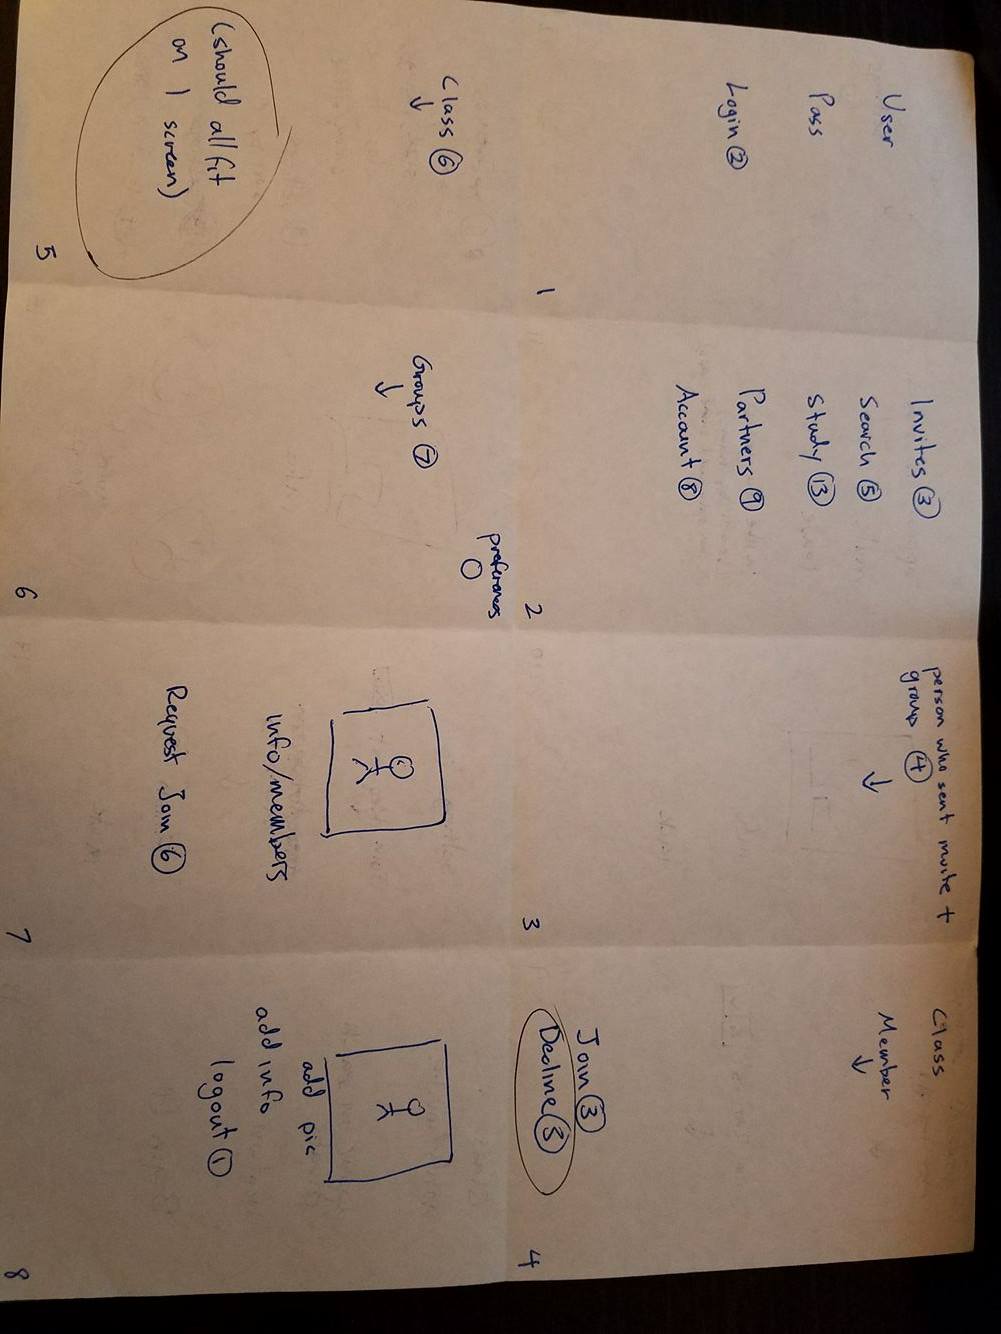 User
Pass
Login ②
1
Invites ③
Search ⑤
Study ⑬
Partners ⑨
Account ⑧
2
person who sent invite +
group ④
↓
3
Class
Member
↓
Join ③
Decline ③
4
Class ⑥
↓
(should all fit
on 1 screen)
5
preferences
Groups ⑦
↓
6
info/members
Request Join ⑥
7
add pic
add info
logout ①
8